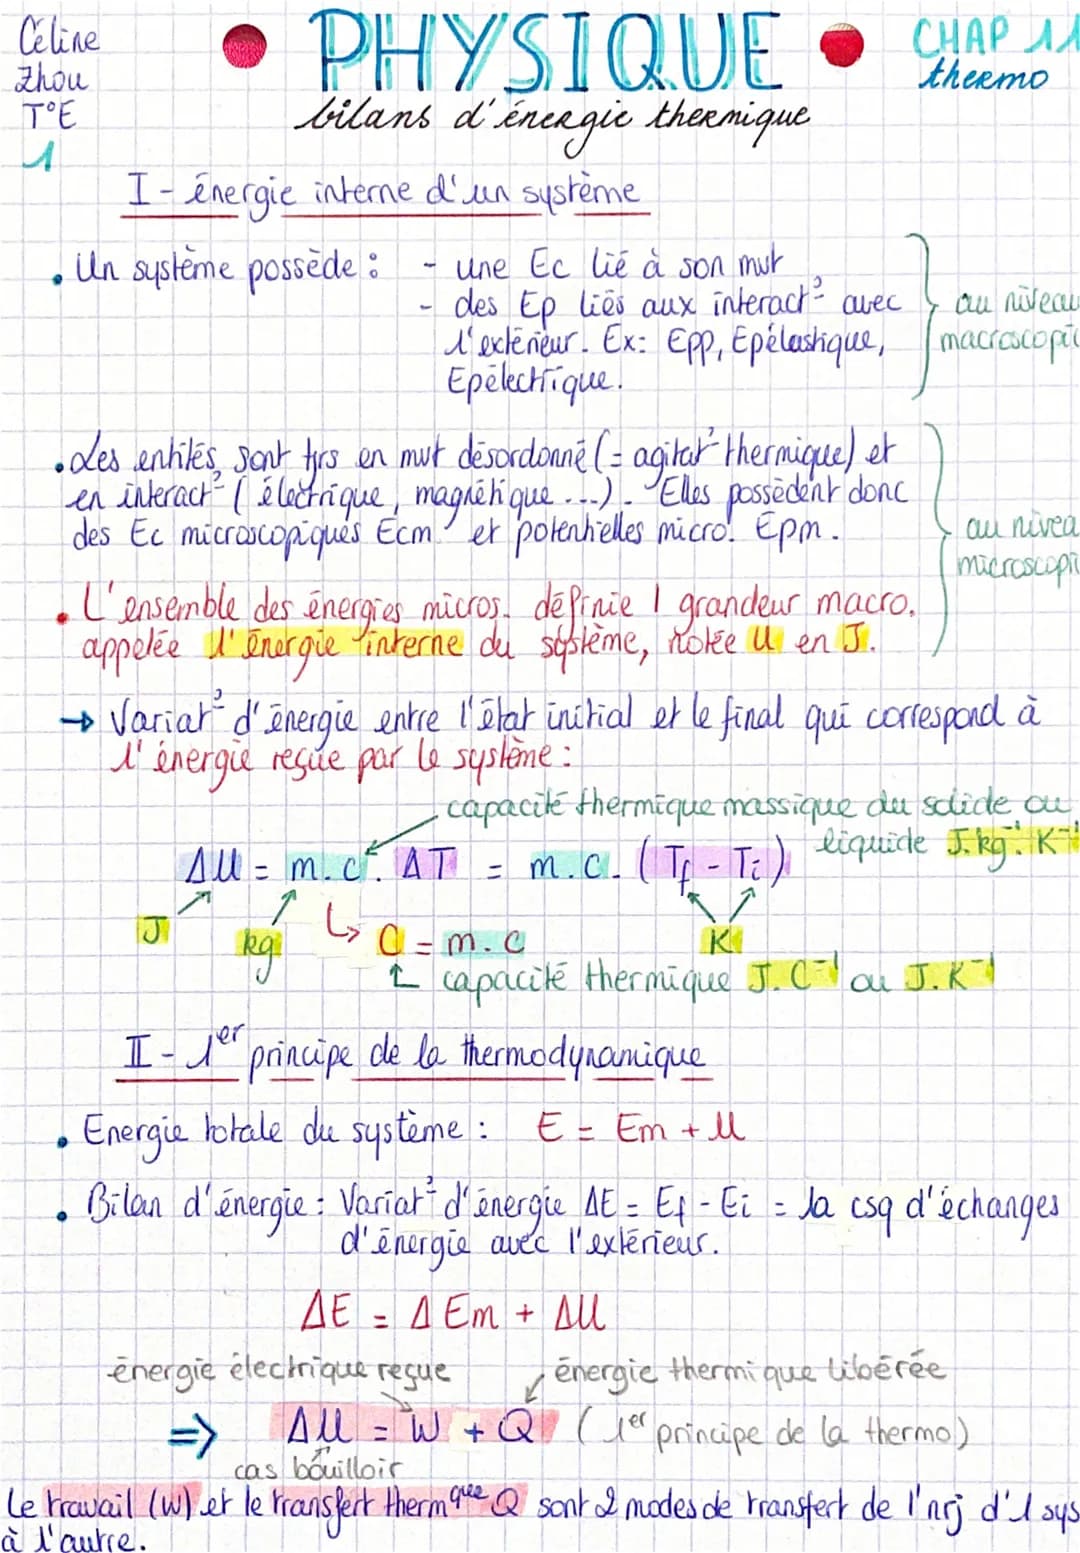 Céline
Zhou
T°E
1
PHYSIQUE
CHAP 11
thermo
bilans d'énergie thermique
I - énergie interne d'un système
• Un système possède : - une Ec lié à son mvt
- des Ep liés aux interact° avec
l'extérieur. Ex: Epp, Epélastique,
Epélectrique.
au niveau
macroscopic
• Les entités sont tjrs en mvt désordonné (= agitat° thermique) et
en interact° (électrique, magnétique ...). Elles possèdent donc
des Ec microscopiques Ecm et potentielles micro. Epm.
au nivea
microscopi
• L'ensemble des énergies micros. définie 1 grandeur macro.
appelée l'énergie interne du système, notée U en J.
→ Variat° d'énergie entre l'état initial et le final qui correspond à
l'énergie reçue par le système :
capacité thermique massique du solide ou
liquide J.kg⁻¹.K⁻¹
ΔU = m.c. ΔT = m.c. (Tf - Ti)
J
kg
↳ C = m.c
K
capacité thermique J.C⁻¹ ou J.K⁻¹
II - 1er principe de la thermodynamique
• Energie totale du système : E = Em + U
• Bilan d'énergie : Variat° d'énergie ΔE = Ef - Ei = la csq d'échanges
d'énergie avec l'extérieur.
ΔE = Δ Em + ΔU
énergie électrique reçue
énergie thermique libérée
⇒ ΔU = W + Q (1er principe de la thermo)
cas bouilloir
Le travail (W) et le transfert thermque Q sont 2 modes de transfert de l'nrj d'1 sys
à l'autre.